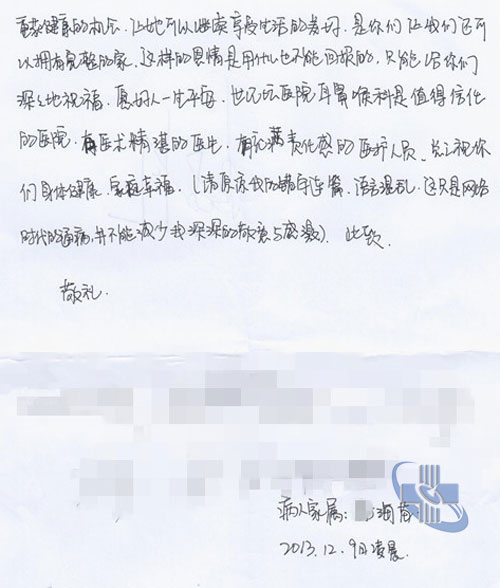 重获健康的机会,让她可以继续享受生活的美好,是你们让我们还可
以拥有完整的家,这样的恩情是用什么也不能回报的,只能给你们
深深地祝福,愿好人一生平安,也祝坛医院耳鼻喉科是值得信任
的医院,有医术精湛的医生,有充满责任感的医护人员,总之祝你
们身体健康,家庭幸福,(请原谅我的错字连篇,语言混乱,这只是网络
时代的通病,并不能减少我深深的敬意与感激)。此致
敬礼.
病人家属:
2013.12.9日凌晨.